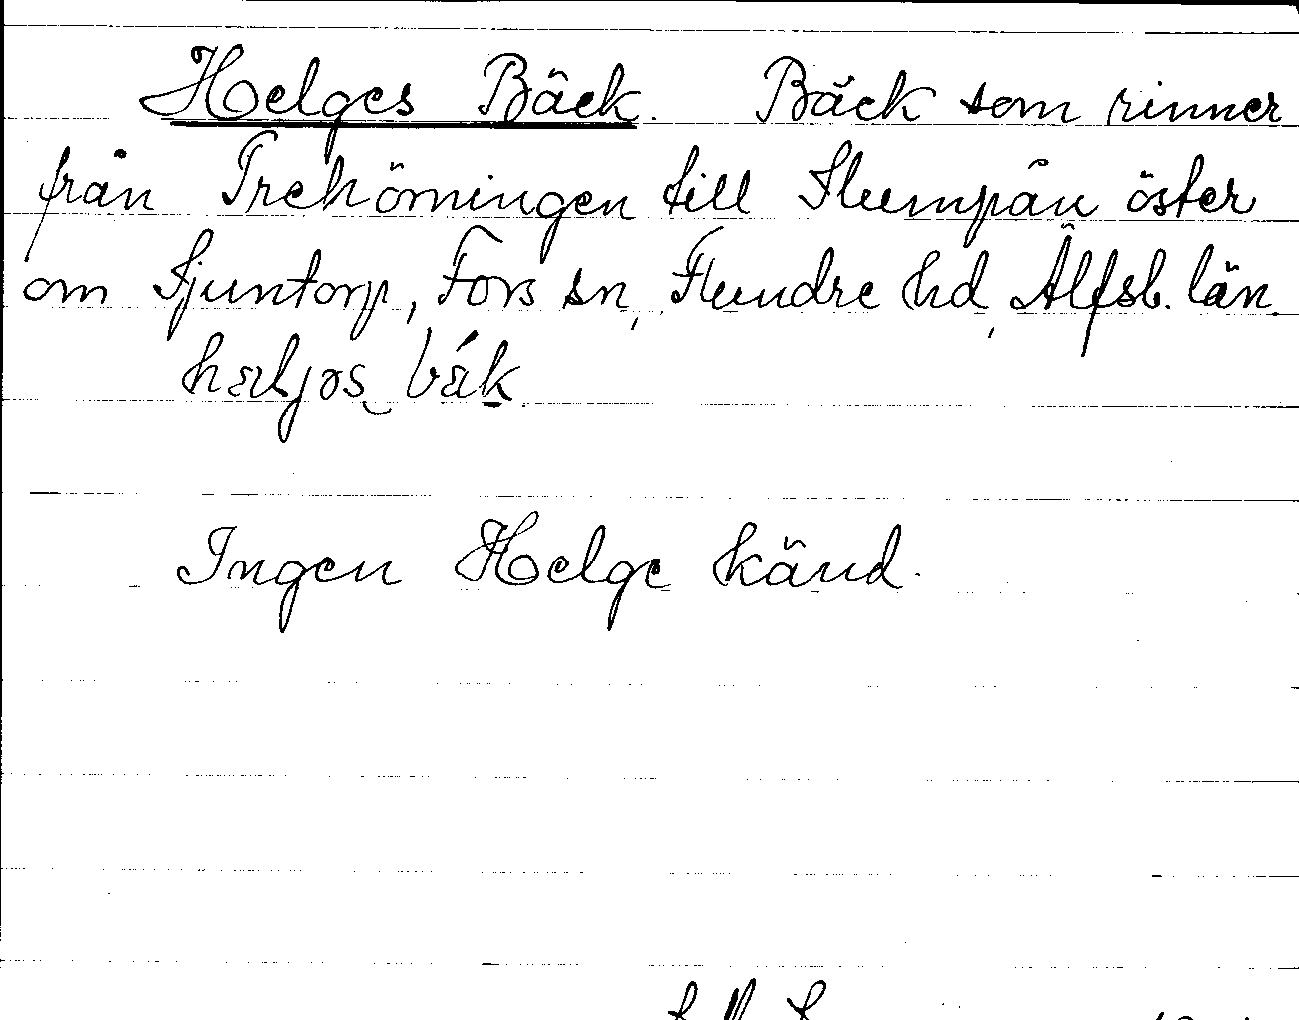 Helges Bäck. Bäck som rinner
från Trehörningen till Slumpån öster
om Sjuntorp, Fors sn, Flundre hd, Älfsb. län.
Ingen Helge känd.